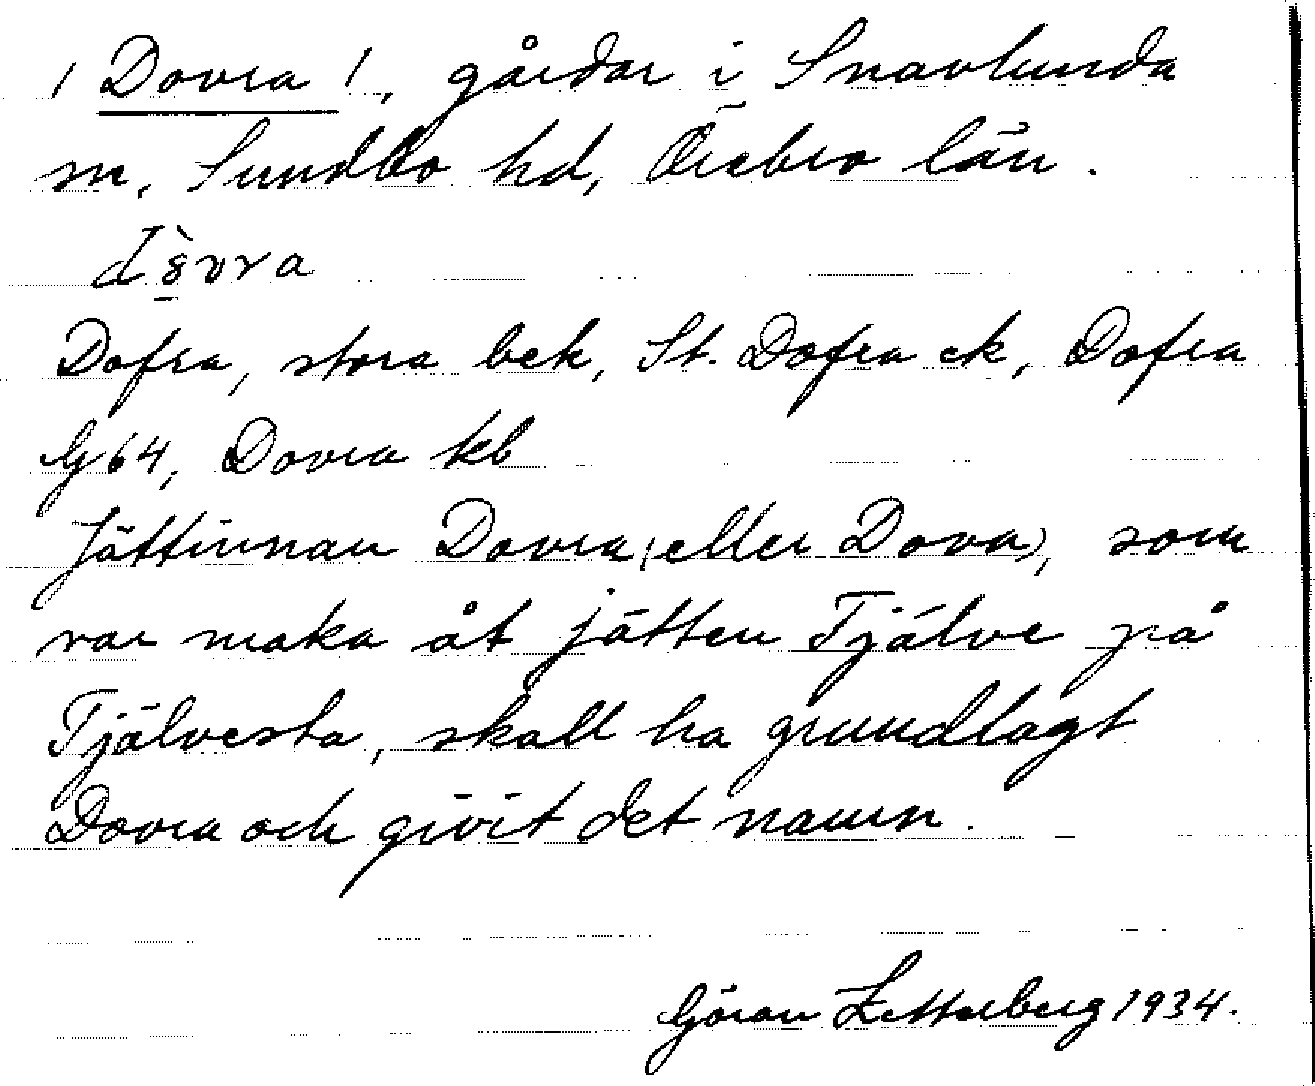 / Dovra /, gårdar i Snavlunda
sn, Sundbo hd, Örebro län.
Dofra, stora bek, St. Dofra ek, Dofra
G 64, Dovra kb
Jättinnan Dovra (eller Dova), som
var maka åt jätten Tjälve på
Tjälvesta, skall ha grundlagt
Dovra och givit det namn.
Göran Zetterberg 1934.